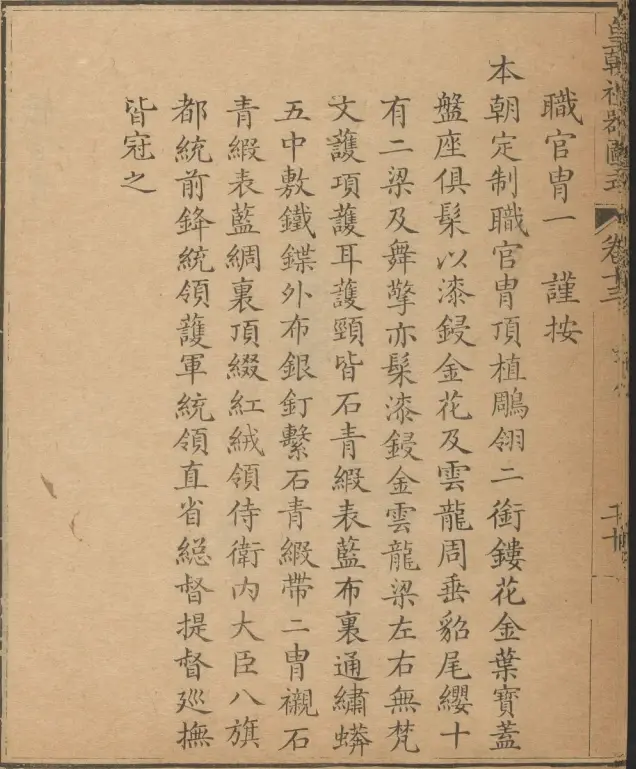 皇朝禮器圖式 卷十三
職官冑一 謹按
本朝定制職官冑頂植鵰翎二銜鏤花金葉寶蓋
盤座俱髹以漆鋄金花及雲龍周垂貂尾纓十
有二梁及舞擎亦髹漆鋄金雲龍梁左右無梵
文護項護耳護頸皆石青緞表藍布裏通繡蟒
五中敷鐵鍱外布銀釘繫石青緞帶二冑襯石
青緞表藍綢裏頂綴紅絨領侍衛内大臣八旗
都統前鋒統領護軍統領直省總督提督廵撫
皆冠之